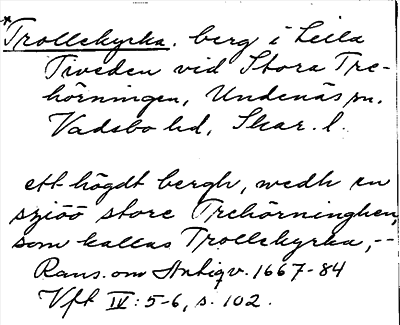 *Trollekyrka. berg i Leila
Tiveden vid Stora Tre-
hörningen, Undenäs sn.
Vadsbo hd, Skar. l.
ett högdt bergh, wedh en
sziöö store Trehörninghen,
som kallas Trollekyrka,--
Rans. om Antiqv. 1667-84
Vft IV: 5-6, s. 102.